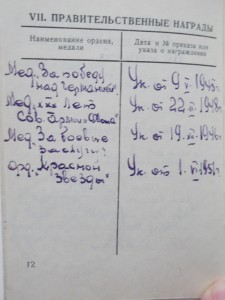 VII. ПРАВИТЕЛЬСТВЕННЫЕ НАГРАДЫ
Наименование ордена, медали
Дата и № приказа или указа о награждении
Мед. „За победу над Германией“
Ук. от 9 V. 1945г.
Мед. „ххх лет Сов. Армии и Флота“
Ук. от 22 1948г.
Мед. „За боевые заслуги“
Ук. от 19
орд. „Красной Звезды“
Ук. от 1. 1951г.
12